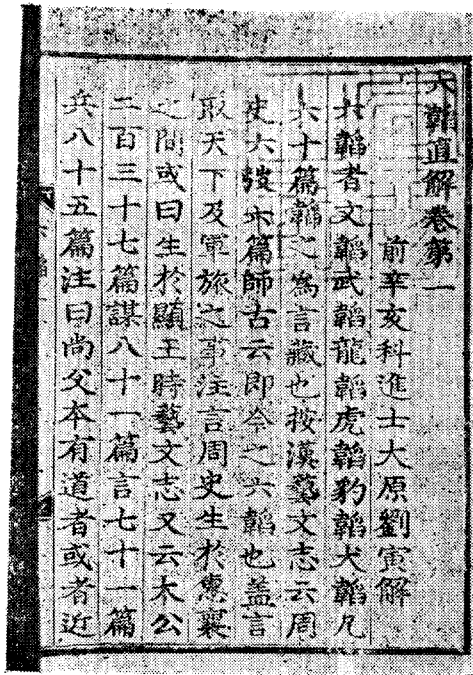 六韜直解卷第一
前辛亥科進士大原劉寅解
六韜者文韜武韜龍韜虎韜豹韜犬韜凡
六十篇韜之爲言藏也按漢藝文志云周
史六弢六篇師古云即今之六韜也蓋言
取天下及軍旅之事注言周史生於惠襄
之間或曰生於顯王時藝文志又云太公
二百三十七篇謀八十一篇言七十一篇
兵八十五篇注曰尚父本有道者或者近